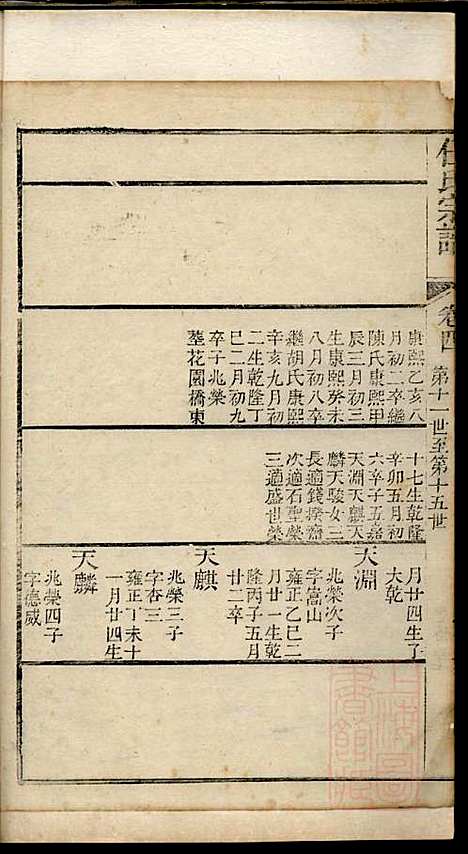 任氏宗譜
卷四
第十一世至第十五世
康熙乙亥八
月初二卒繼
陳氏康熙甲
辰三月初三
生康熙癸未
八月初八卒
繼胡氏康熙
辛亥九月初
二生乾隆丁
巳二月初九
卒子兆榮
墓花園橋東
十七生乾隆
辛卯五月初
六卒子五嘉
天淵天麒天
麟天駿女三
長適錢揆
次適石聖榮
三適盛世榮
月廿四生子
大乾
天淵
兆榮次子
字嵩山
雍正乙巳二
月廿一生乾
隆丙子五月
廿二卒
天麒
兆榮三子
字杏三
雍正丁未十
一月廿四生
天麟
兆榮四子
字德威